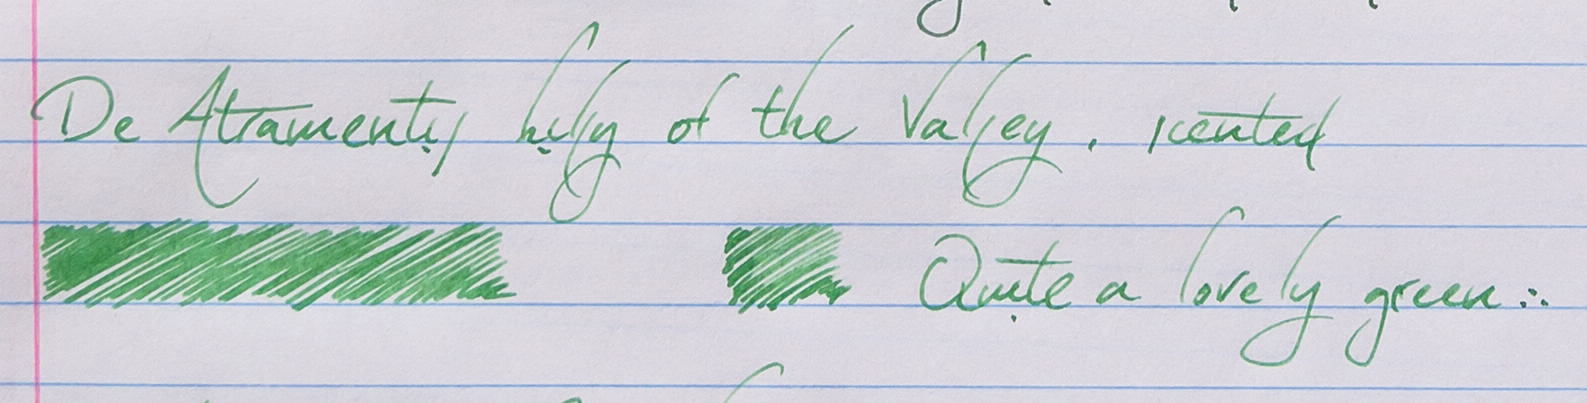 De Atramentis Lilly of the Valley, scented
Quite a lovely green :.